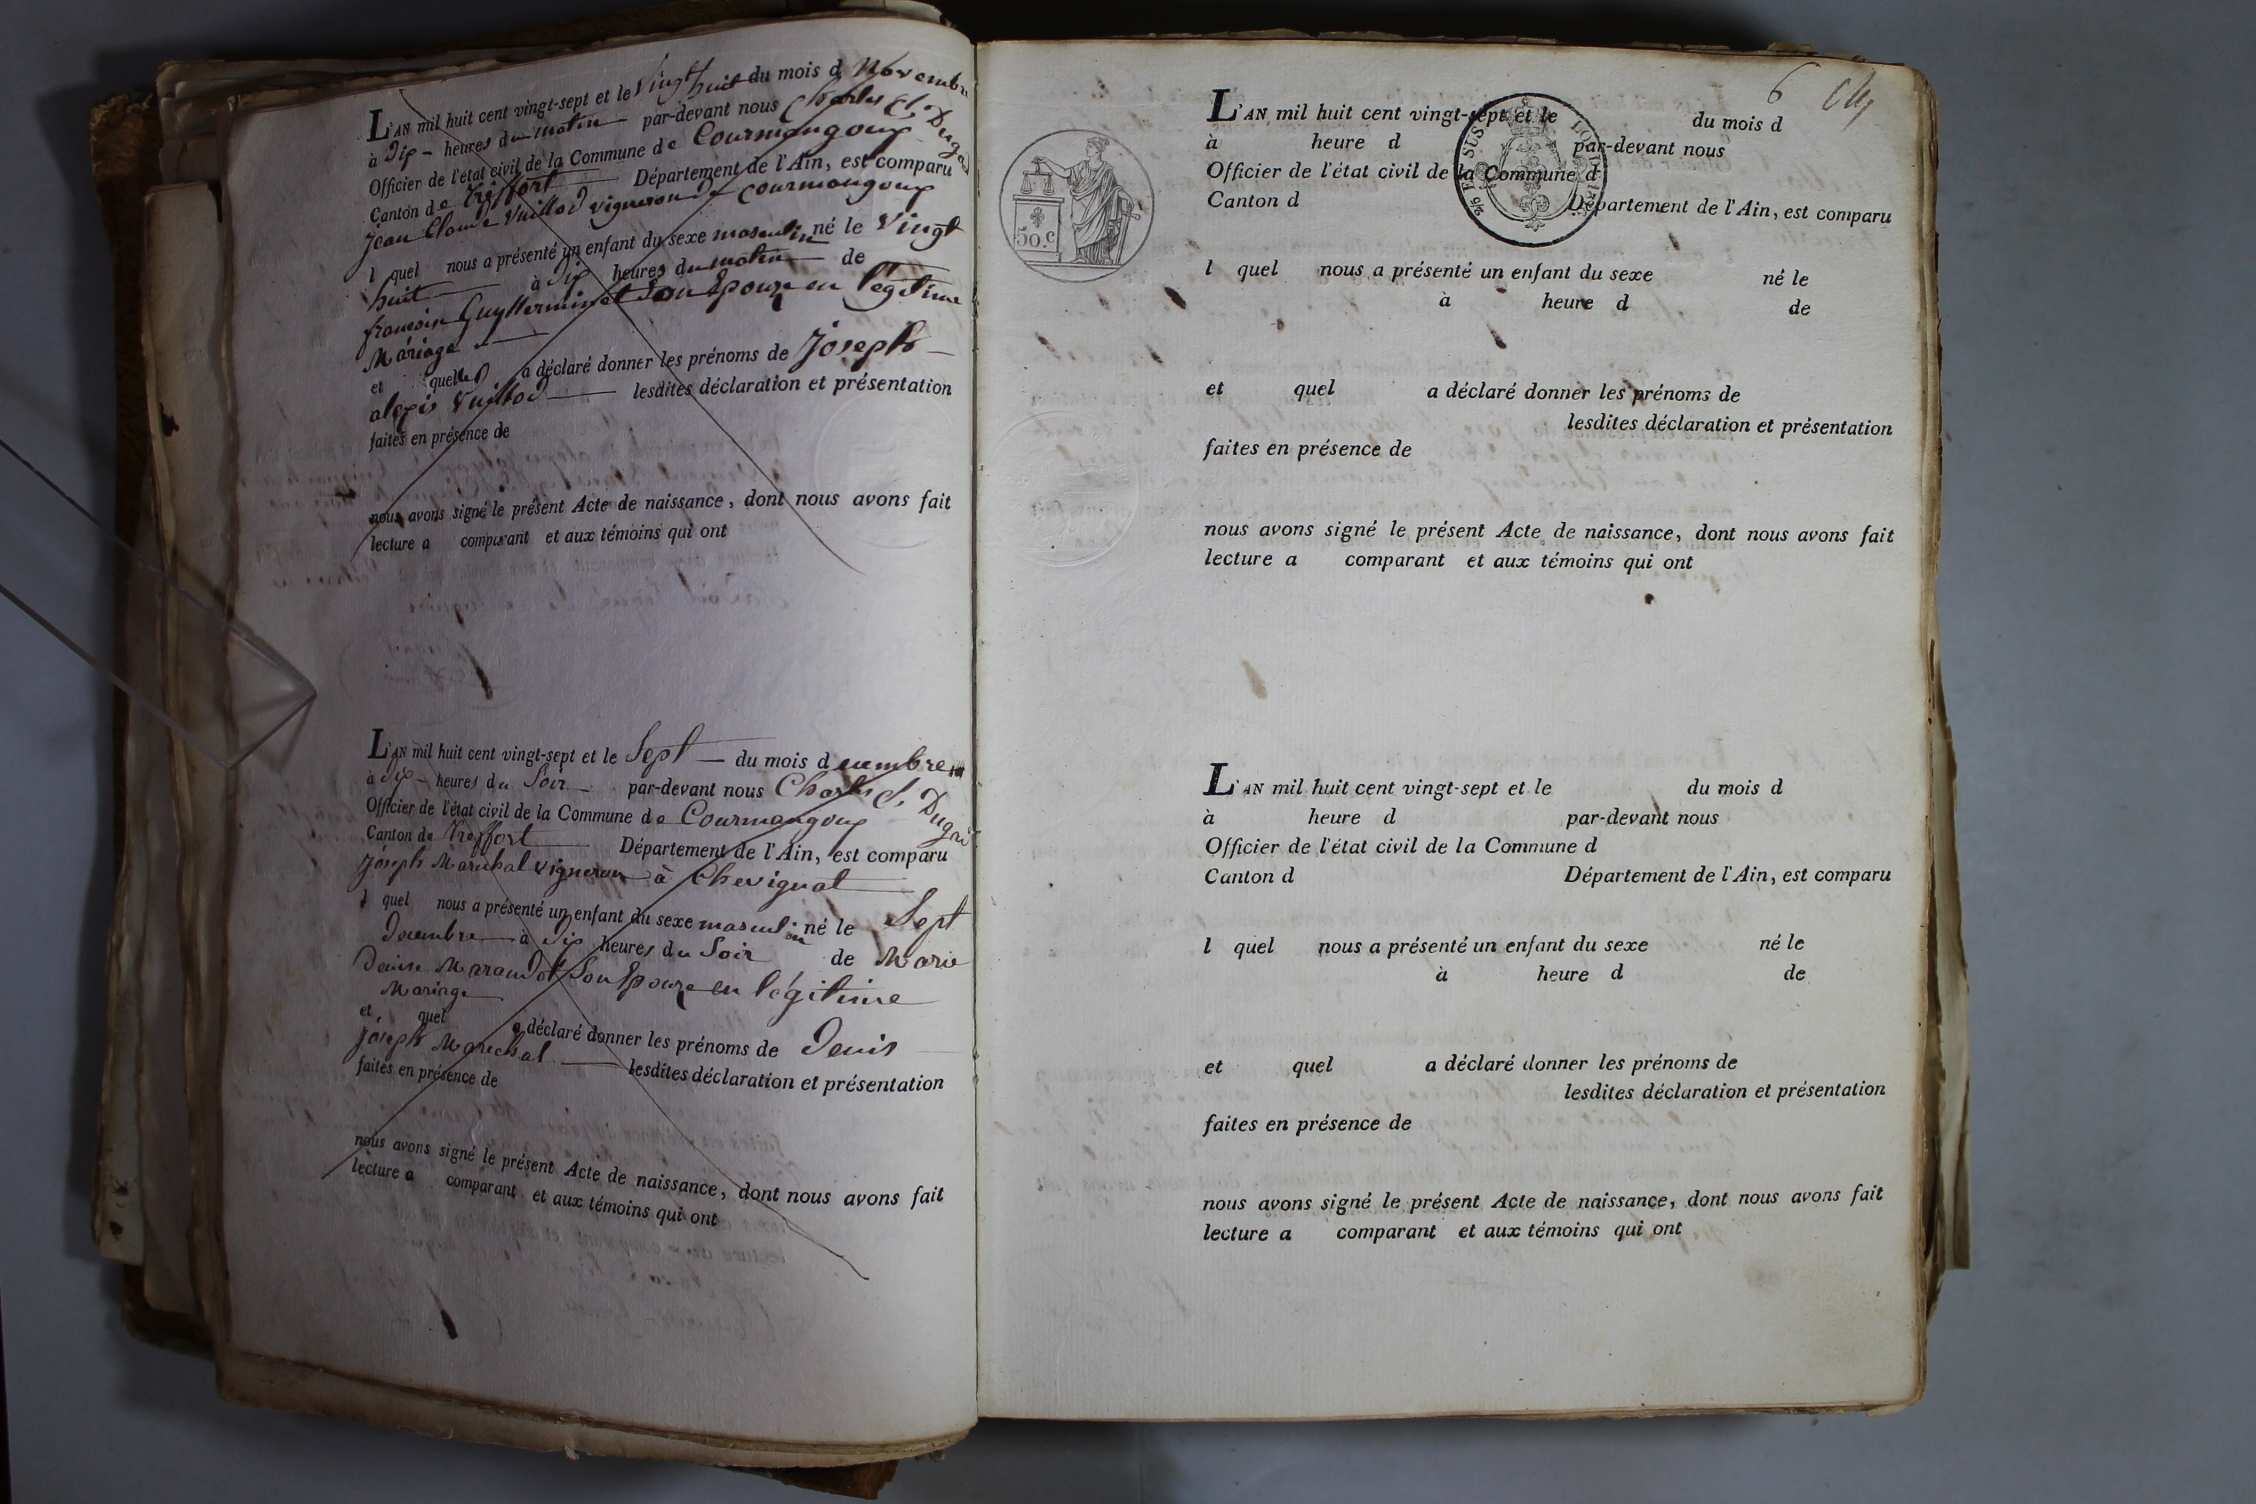 L'AN mil huit cent vingt-sept et le Vingt huit du mois d Novembre
à dix heures du matin par-devant nous Charles C. Dugad
Officier de l'état civil de la Commune de Courmangoux
Canton de Treffort Département de l'Ain, est comparu
Jean Claude Vuillod vigneron de courmangoux
l quel nous a présenté un enfant du sexe masculin né le Vingt
huit à dix heures du matin de
francoise Guyllerminet son Epouze en légitime
Mariage
et quel a déclaré donner les prénoms de Joseph
alexis Vuillod lesdites déclaration et présentation
faites en présence de
nous avons signé le présent Acte de naissance, dont nous avons fait
lecture a comparant et aux témoins qui ont
L'AN mil huit cent vingt-sept et le Sept du mois d
à dix heures du Soir par-devant nous Charles C. Dugad
Officier de l'état civil de la Commune de Courmangoux
Canton de Treffort Département de l'Ain, est comparu
Joseph Maréchal vigneron à Chevignat
l quel nous a présenté un enfant du sexe masculin né le Sept
Decembre à dix heures du Soir de Marie
Denise Son Epouze en légitime
Mariage
et quel a déclaré donner les prénoms de Denis
Joseph Maréchal lesdites déclaration et présentation
faites en présence de
nous avons signé le présent Acte de naissance, dont nous avons fait
lecture a comparant et aux témoins qui ont
6
50.c
L'AN mil huit cent vingt-sept et le du mois d
à heure d par-devant nous
Officier de l'état civil de la Commune d
Canton d Département de l'Ain, est comparu
l quel nous a présenté un enfant du sexe né le
à heure d de
et quel a déclaré donner les prénoms de
lesdites déclaration et présentation
faites en présence de
nous avons signé le présent Acte de naissance, dont nous avons fait
lecture a comparant et aux témoins qui ont
L'AN mil huit cent vingt-sept et le du mois d
à heure d par-devant nous
Officier de l'état civil de la Commune d
Canton d Département de l'Ain, est comparu
l quel nous a présenté un enfant du sexe né le
à heure d de
et quel a déclaré donner les prénoms de
lesdites déclaration et présentation
faites en présence de
nous avons signé le présent Acte de naissance, dont nous avons fait
lecture a comparant et aux témoins qui ont